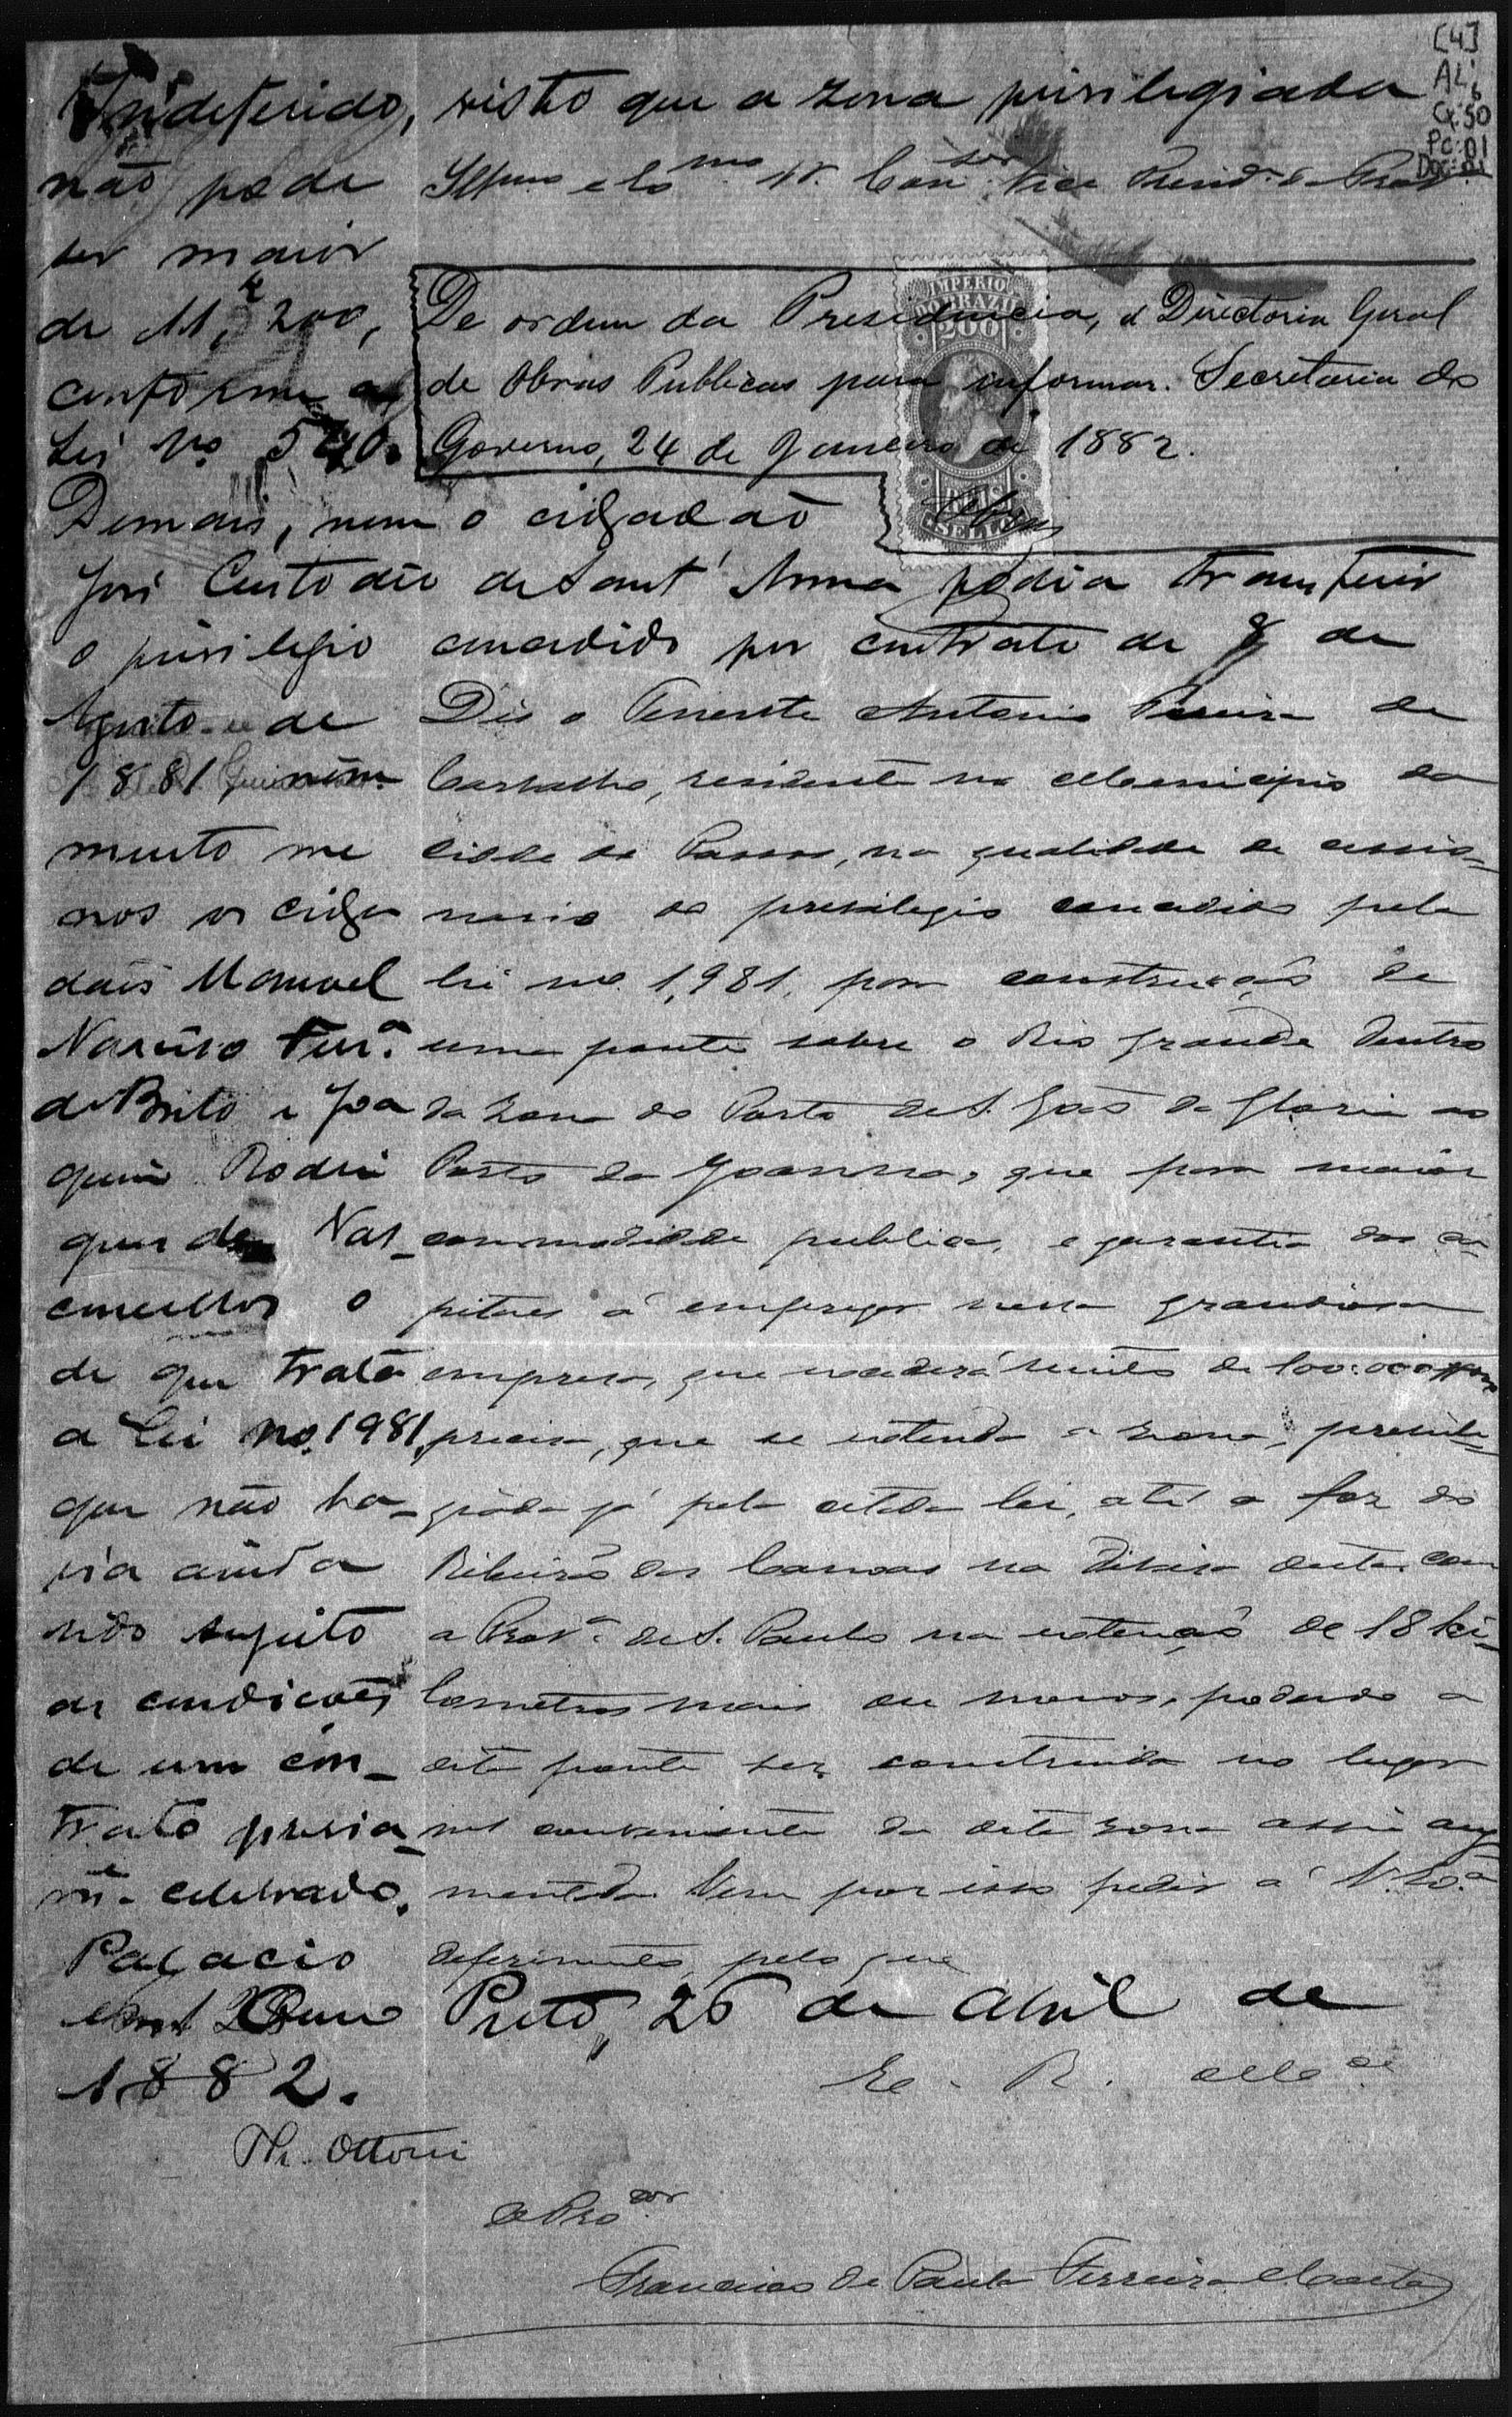 [4]
AL'
Cx: 50
Pc: 01
Doc: 01
Indeferido, visto que a zona privilegiada
não pode
ser maior
de 11,k 200,
conforme a
Lei no
Demais, nem o cidadão
José Custodio de Sant'Anna podia transferir
o privilegio concedido por contrato de 8 de
Agosto de
1881,
muito me
nos os cida
dãos Manoel
Narciso Ferra
de Brito e Joa
quim Rodri
gues de Vas-
concellos o
de que trata
a Lei no 1981,
que não ha-
via ainda
sido sujeito
as condicoẽs
de um con-
trato previa-
mte celebrado.
Palacio
em Ouro Preto, 26 de Abril de
1882.
Th. Ottoni
Illmo e Exmo Sr. Consor Vice Presid.e da Prov.
De ordem da Presidencia, á Directoria Geral
de Obras Publicas para informar. Secretaria do
Governo, 24 de Janeiro de 1882.
IMPERIO
DO BRAZIL
200
REIS
SELLO
Diz o Tenente Antonio Pereira de
Carvalho, residente no Municipio da
cidde de Passos, na qualidade de cessio-
nario do previlegio concedido pela
lei no 1,981, para construcção de
uma ponte sobre o Rio Grande dentro
da zona do Porto de S. João da Gloria ao
Porto da Joanna, que para maior
commodidade publica, e garantia dos ca-
pitaes á empregar nessa grandiosa
empresa, que excederá muito de 100:000$000
precisa, que se extenda a zona, previle-
giada já pela citada lei, até a foz do
Ribeirão das Canoas na divisa desta com
a Prova de S. Paulo na extenção de 18 ki-
lometros mais ou menos, podendo a
dita ponte ser construida no lugar
mas conveniente da dita zona assim aug
mentada. Vem por isso pedir a V. Exa
deferimento, pelo que
E. R. Mce
O Prodor
Francisco de Paula Ferreira